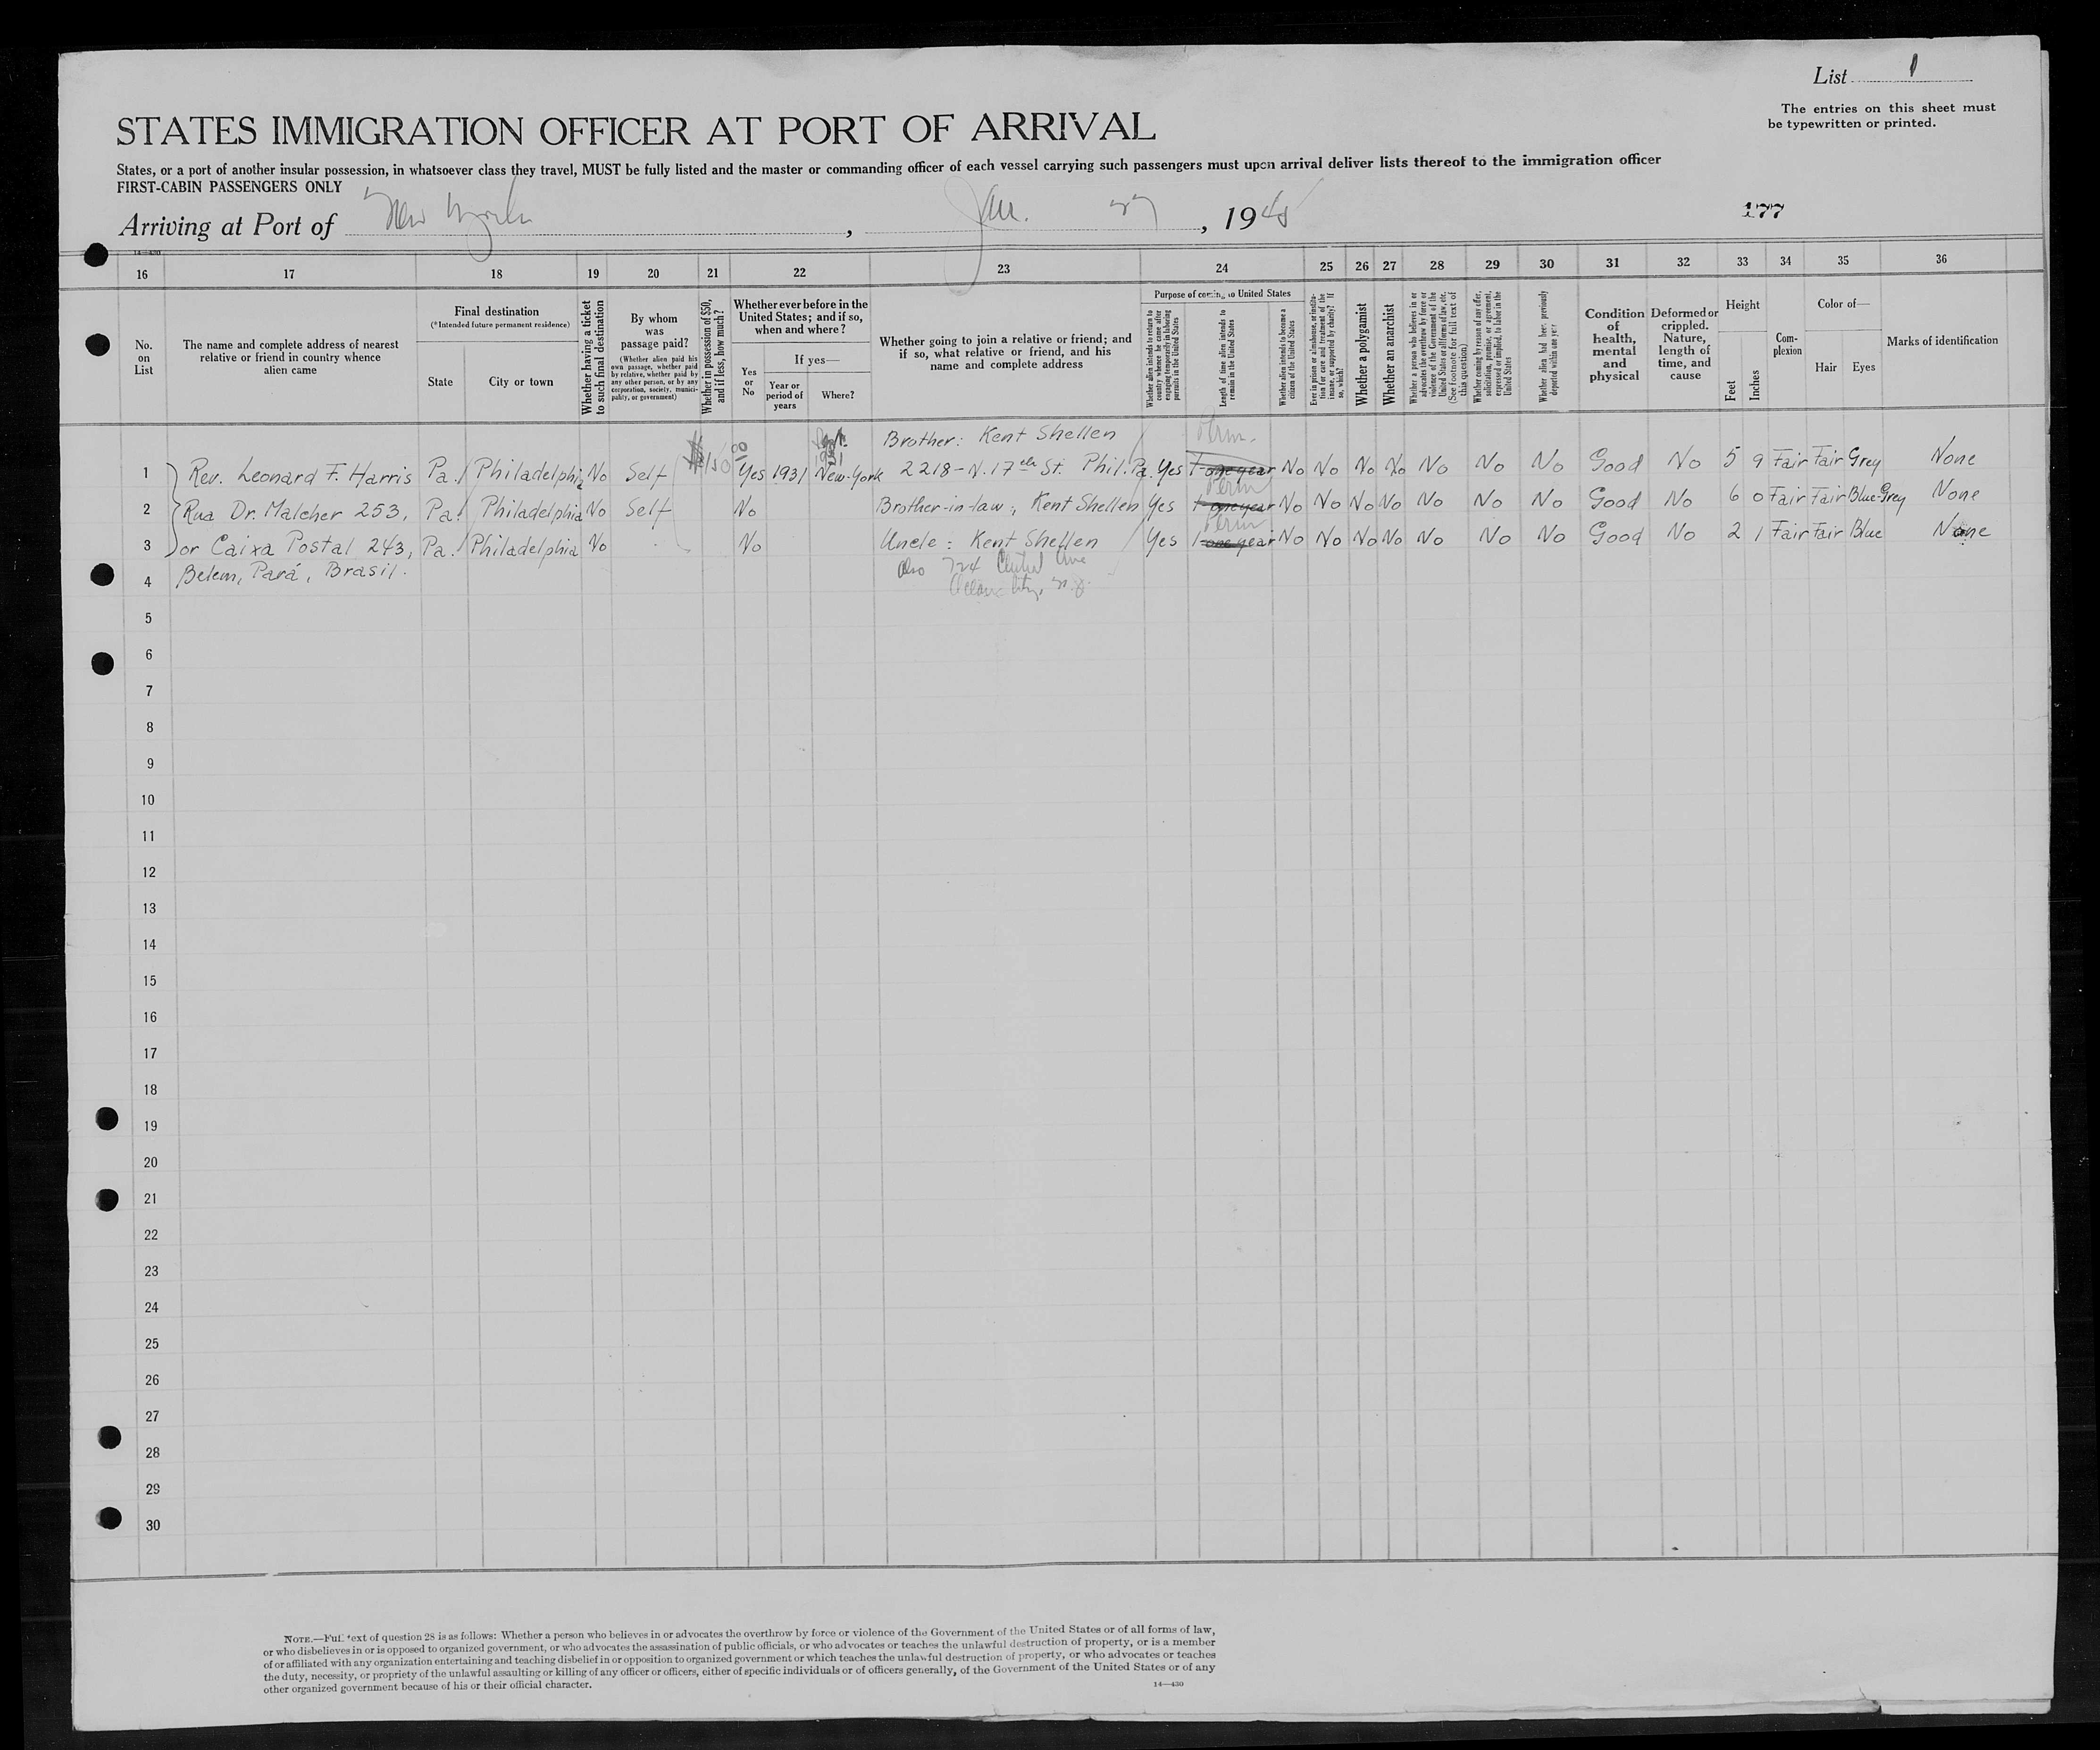 List 1
The entries on this sheet must
be typewritten or printed.
STATES IMMIGRATION OFFICER AT PORT OF ARRIVAL
States, or a port of another insular possession, in whatsoever class they travel, MUST be fully listed and the master or commanding officer of each vessel carrying such passengers must upon arrival deliver lists thereof to the immigration officer
FIRST-CABIN PASSENGERS ONLY
Arriving at Port of New York, Jan. 27, 1945
177
16 17 18 19 20 21 22 23 24 25 26 27 28 29 30 31 32 33 34 35 36
No. on List
The name and complete address of nearest relative or friend in country whence alien came
Final destination
(*Intended future permanent residence)
State
City or town
Whether having a ticket to such final destination
By whom was passage paid?
(Whether alien paid his own passage, whether paid by relative, whether paid by any other person, or by any corporation, society, municipality, or government)
Whether in possession of $50, and if less, how much?
Whether ever before in the United States; and if so, when and where?
Yes or No
If yes—
Year or period of years
Where?
Whether going to join a relative or friend; and if so, what relative or friend, and his name and complete address
Purpose of coming to United States
Whether alien intends to return to country whence he came after engaging temporarily in laboring pursuits in the United States
Length of time alien intends to remain in the United States
Whether alien intends to become a citizen of the United States
Ever in prison or almshouse, or institution for care and treatment of the insane, or supported by charity? If so, which?
Whether a polygamist
Whether an anarchist
Whether a person who believes in or advocates the overthrow by force or violence of the Government of the United States or all forms of law, etc. (See footnote for full text of this question)
Whether coming by reason of any offer, solicitation, promise, or agreement, expressed or implied, to labor in the United States
Whether alien had been previously deported within one year
Condition of health, mental and physical
Deformed or crippled. Nature, length of time, and cause
Height
Feet
Inches
Complexion
Color of—
Hair
Eyes
Marks of identification
Brother: Kent Shellen Perm.
1 Rev. Leonard F. Harris Pa. Philadelphia No Self Yes 1931 New-York 2218-N. 17th St. Phil. Pa. Yes 1 one year No No No No No No No Good No 5 9 Fair Fair Grey None
Perm
2 Rua Dr. Malcher 253, Pa. Philadelphia No Self No Brother-in-law: Kent Shellen Yes 1 one year No No No No No No No Good No 6 0 Fair Fair Blue-Grey None
Perm
3 or Caixa Postal 243, Pa. Philadelphia No No Uncle: Kent Shellen Yes 1 one year No No No No No No No Good No 2 1 Fair Fair Blue None
4 Belem, Pará, Brasil. also 724 Central Ave
Ocean City, N.J.
5
6
7
8
9
10
11
12
13
14
15
16
17
18
19
20
21
22
23
24
25
26
27
28
29
30
NOTE.—Full text of question 28 is as follows: Whether a person who believes in or advocates the overthrow by force or violence of the Government of the United States or of all forms of law,
or who disbelieves in or is opposed to organized government, or who advocates the assassination of public officials, or who advocates or teaches the unlawful destruction of property, or is a member
of or affiliated with any organization entertaining and teaching disbelief in or opposition to organized government or which teaches the unlawful destruction of property, or who advocates or teaches
the duty, necessity, or propriety of the unlawful assaulting or killing of any officer or officers, either of specific individuals or of officers generally, of the Government of the United States or of any
other organized government because of his or their official character.
14—430